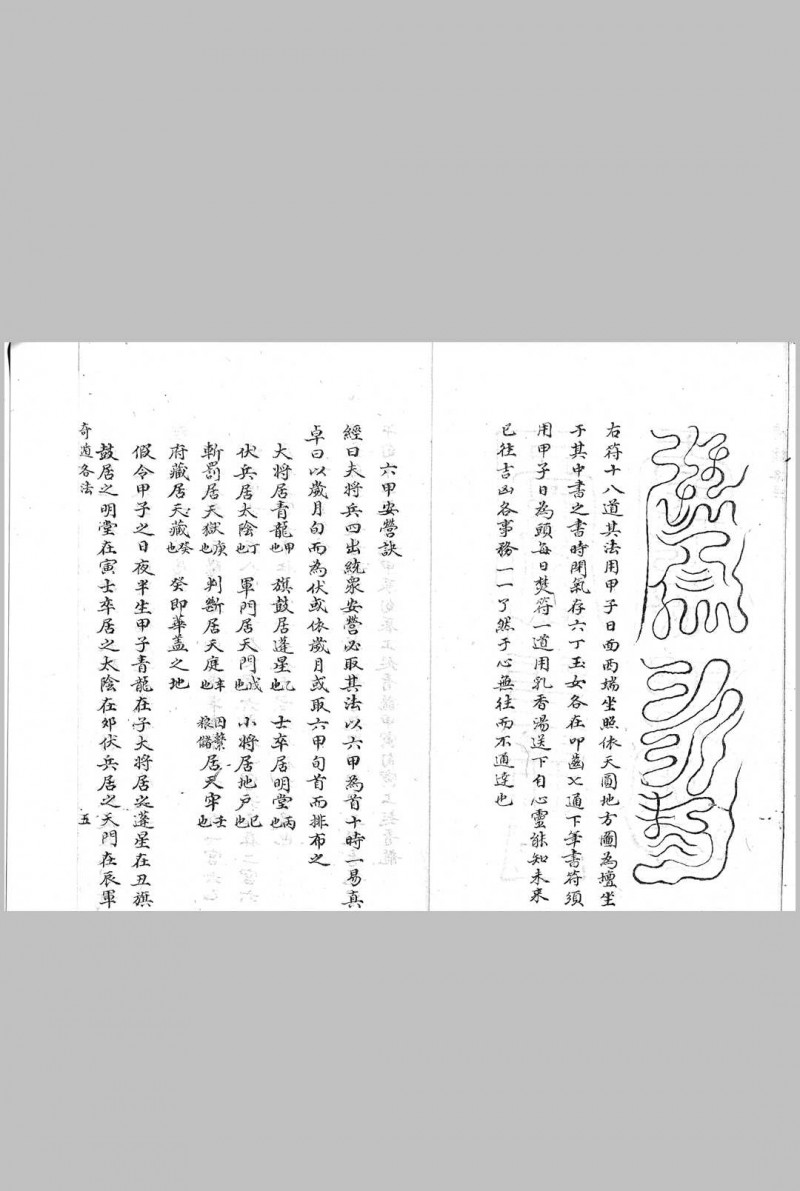 右符十八道其法用甲子日面西端坐照依天圓地方圖為壇坐
于其中書之書時閉氣存六丁玉女各在叩齒七通下筆書符須
用甲子日為頭每日焚符一道用乳香湯送下自心靈能知未來
已往吉凶各事務一一了然于心無往而不通達也
六甲安營訣
經曰夫將兵四出統衆安營必取其法以六甲為首十時一易真
卓曰以歲月旬而為伏或依歲月或取六甲旬首而排布之
大將居青龍甲也 旗鼓居蓬星乙也 士卒居明堂丙也
伏兵居太陰丁也 軍門居天門戊也 小將居地戶己也
斬罰居天獄庚也 判斷居天庭辛也 囚繫糧儲居天牢壬也
府藏居天藏癸也 癸即華蓋之地
假令甲子之日夜半生甲子青龍在子大將居之蓬星在丑旗
鼓居之明堂在寅士卒居之太陰在卯伏兵居之天門在辰軍
奇遁各法 五